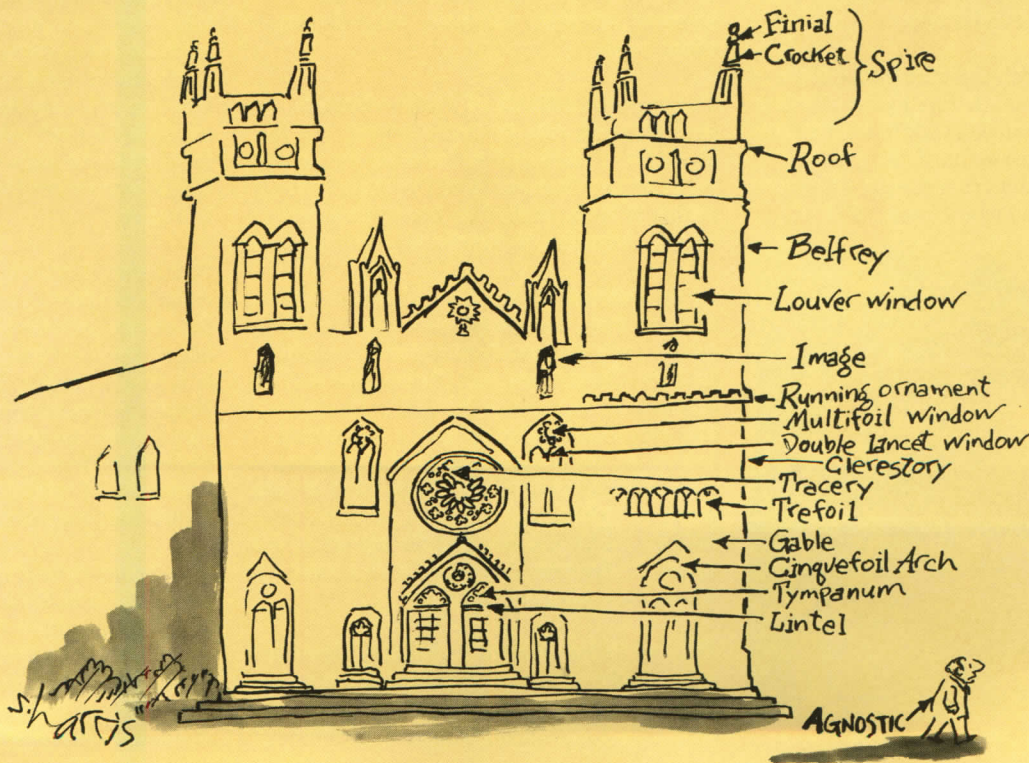 Finial
Crocket
Spire
Roof
Belfrey
Louver window
Image
Running ornament
Multifoil window
Double lancet window
Clerestory
Tracery
Trefoil
Gable
Cinquefoil Arch
Tympanum
Lintel
AGNOSTIC
s. harris